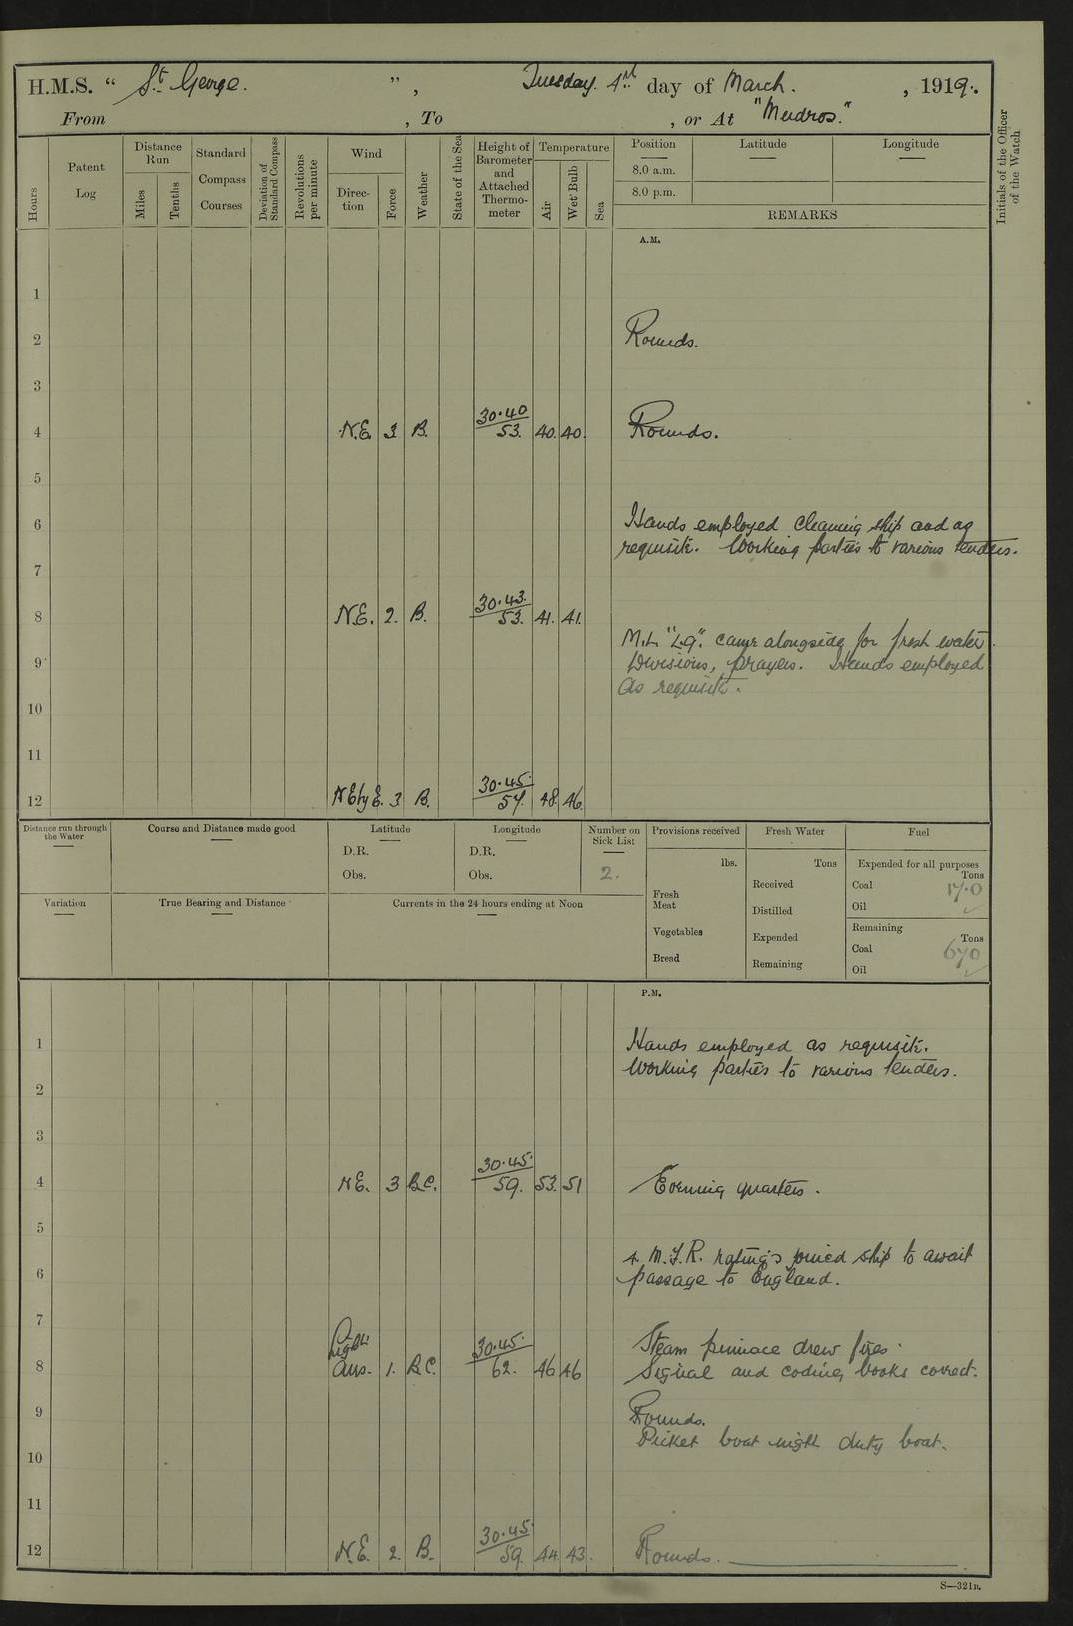 H.M.S. “ St. George. ”, Tuesday. 4th day of March. , 1919.
From , To , or At "Mudros."
Hours
Patent Log
Distance Run
Miles
Tenths
Standard Compass Courses
Deviation of Standard Compass
Revolutions per minute
Wind
Direction
Force
Weather
State of the Sea
Height of Barometer and Attached Thermometer
Temperature
Air
Wet Bulb
Sea
Position
8.0 a.m.
8.0 p.m.
Latitude
Longitude
REMARKS
Initials of the Officer of the Watch
A.M.
1
2 Rounds.
3
4 N.E. 3 B. 30.40 53. 40. 40. Rounds.
5
6 Hands employed cleaning ship and as
requisite. Working parties to various tenders.
7
8 N.E. 2. B. 30.43. 53. 41. 41.
M.L. came alongside for fresh water.
9 Divisions, prayers. Hands employed
as requisite.
10
11
12 NEbyE. 3 B. 30.45. 57. 48. 46.
Distance run through the Water
Course and Distance made good
Latitude
D.R.
Obs.
Longitude
D.R.
Obs.
Number on Sick List
2.
Provisions received
lbs.
Fresh Meat
Vegetables
Bread
Fresh Water
Tons
Received
Distilled
Expended
Remaining
Fuel
Expended for all purposes
Tons
Coal 17.0
Oil
Remaining
Tons
Coal 670
Oil
Variation
True Bearing and Distance
Currents in the 24 hours ending at Noon
P.M.
1 Hands employed as requisite.
Working parties to various tenders.
2
3
4 NE. 3 B.C. 30.45. 59. 53. 51 Evening quarters.
5
4. M.F.R. ratings joined ship to await
6 passage to England.
7
Light
Steam pinnace drew fires.
8 Airs. 1. B.C. 30.45. 62. 46 46 Signal and coding books correct.
9 Rounds.
Picket boat night duty boat.
10
11
12 N.E. 2. B. 30.45. 59. 44. 43. Rounds.
S—321B.